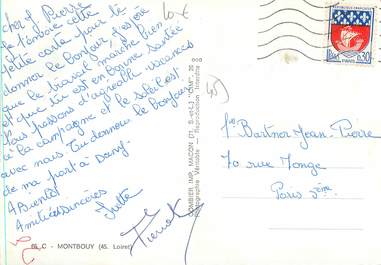 cher Pierre
Je t'envoie cette
petite carte pour te
donner le bonjour, j'espère
que le travail marche bien
et que tu est en bonne santée
Nous passons d'agréable vacances
à la campagne et le soleil est
avec nous. Tu donneras le bonjour
de ma part à
A Bientôt
Amitiées sincères
Pierrot
COMBIER IMP. MACON (71. S-et-L.) "CIM"
Photographie Véritable - Reproduction Interdite
REPUBLIQUE FRANÇAISE
0,30
PARIS
Bartner Jean-Pierre
70 rue Monge
Paris 5ème
C - MONTBOUY (45. Loiret)